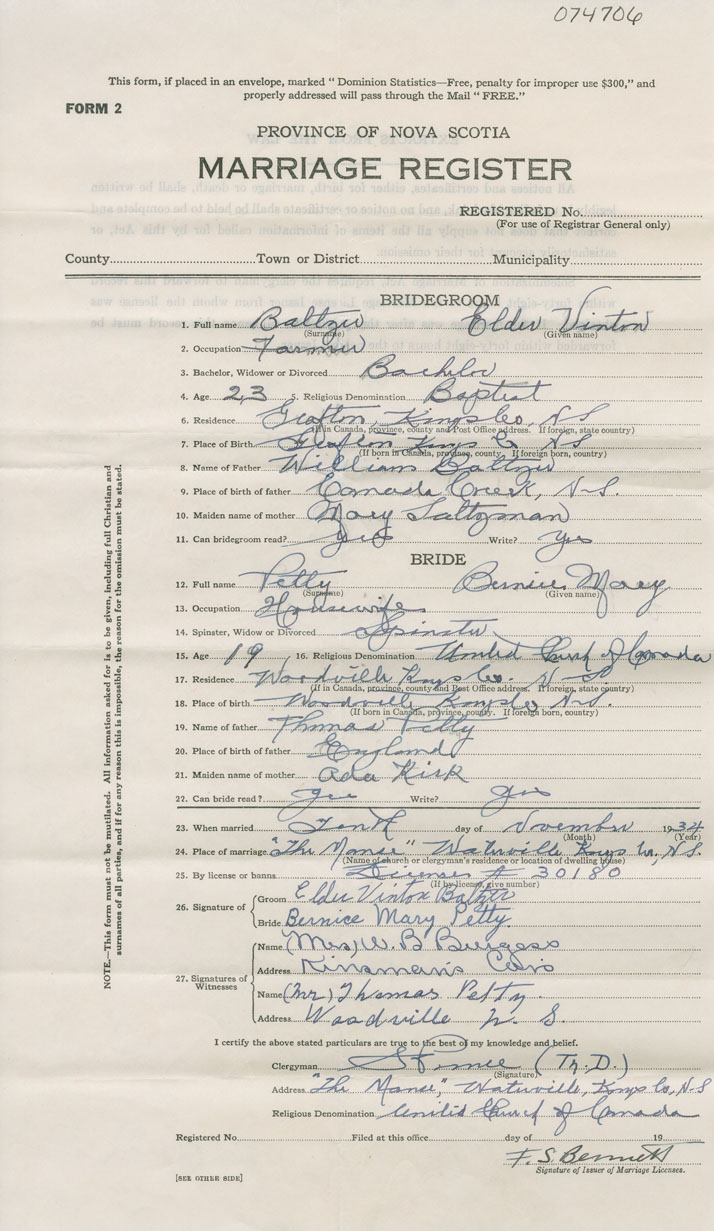 074706
This form, if placed in an envelope, marked " Dominion Statistics—Free, penalty for improper use $300," and
properly addressed will pass through the Mail " FREE."
FORM 2
PROVINCE OF NOVA SCOTIA
MARRIAGE REGISTER
REGISTERED No.
(For use of Registrar General only)
County Town or District Municipality
BRIDEGROOM
1. Full name Baltzer Elder Vinton
(Surname) (Given name)
2. Occupation Farmer
3. Bachelor, Widower or Divorced Bachelor
4. Age 23 5. Religious Denomination Baptist
6. Residence Grafton, Kings Co, N S
(If in Canada, province, county and Post Office address. If foreign, state country)
7. Place of Birth Grafton Kings Co NS
(If born in Canada, province, county. If foreign born, country)
8. Name of Father William Baltzer
9. Place of birth of father Canada Creek, N-S.
10. Maiden name of mother Mary Saltzman
11. Can bridegroom read? Yes Write? Yes
BRIDE
12. Full name Petty Bernice Mary
(Surname) (Given name)
13. Occupation Housewife
14. Spinster, Widow or Divorced Spinster
15. Age 19 16. Religious Denomination United Church of Canada
17. Residence Woodville Kings Co. N-S.
(If in Canada, province, county and Post Office address. If foreign, state country)
18. Place of birth Woodville Kings Co N-S.
(If born in Canada, province, county. If foreign born, country)
19. Name of father Thomas Petty
20. Place of birth of father England
21. Maiden name of mother Ada Kirk
22. Can bride read? Yes Write? Yes
23. When married Tenth day of November 1934
(Month) (Year)
24. Place of marriage "The Manse" Waterville, Kings Co, N.S.
(Name of church or clergyman's residence or location of dwelling house)
25. By license or banns License # 30180
(If by license, give number)
26. Signature of
Groom Elder Vinton Baltzer
Bride Bernice Mary Petty.
27. Signatures of Witnesses
Name (Mrs) W. B Burgess
Address Kinsman's Cor's
Name (Mr) Thomas Petty.
Address Woodville N. S.
I certify the above stated particulars are true to the best of my knowledge and belief.
Clergyman (Th.D.)
(Signature)
Address "The Manse", Waterville, Kings Co, N-S
Religious Denomination United Church of Canada
Registered No. Filed at this office day of 19
F. S. Bennett
Signature of Issuer of Marriage Licenses.
[SEE OTHER SIDE]
NOTE.—This form must not be mutilated. All information asked for is to be given, including full Christian and
surnames of all parties, and if for any reason this is impossible, the reason for the omission must be stated.